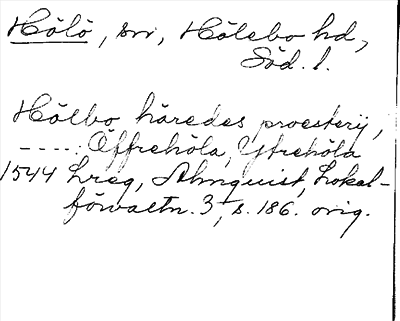 Hölö, sn, Hölebo hd,
Söd. l.
Hölbo häredes proesterij,
-----: Öffrehöla, Ytrehöla
1544 Lreg, Almquist, Lokal-
förvaltn. 3, s. 186. orig.